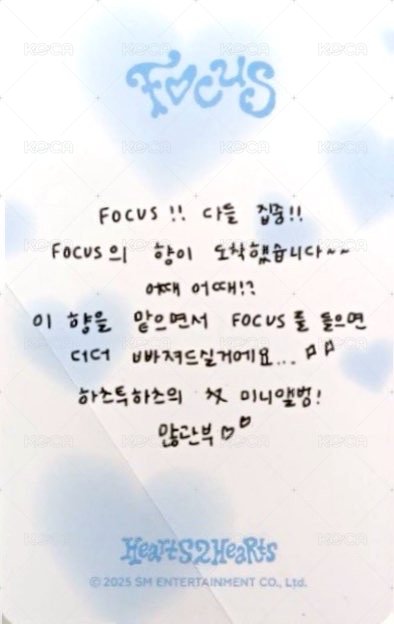 FOCUS
FOCUS !! 다들 집중!!
FOCUS의 향이 도착했습니다~~
어때 어때!?
이 향을 맡으면서 FOCUS를 들으면
더더 빠져드실거에요...
하츠투하츠의 첫 미니앨범!
많관부
Hearts2Hearts
© 2025 SM ENTERTAINMENT CO., Ltd.
KOCA